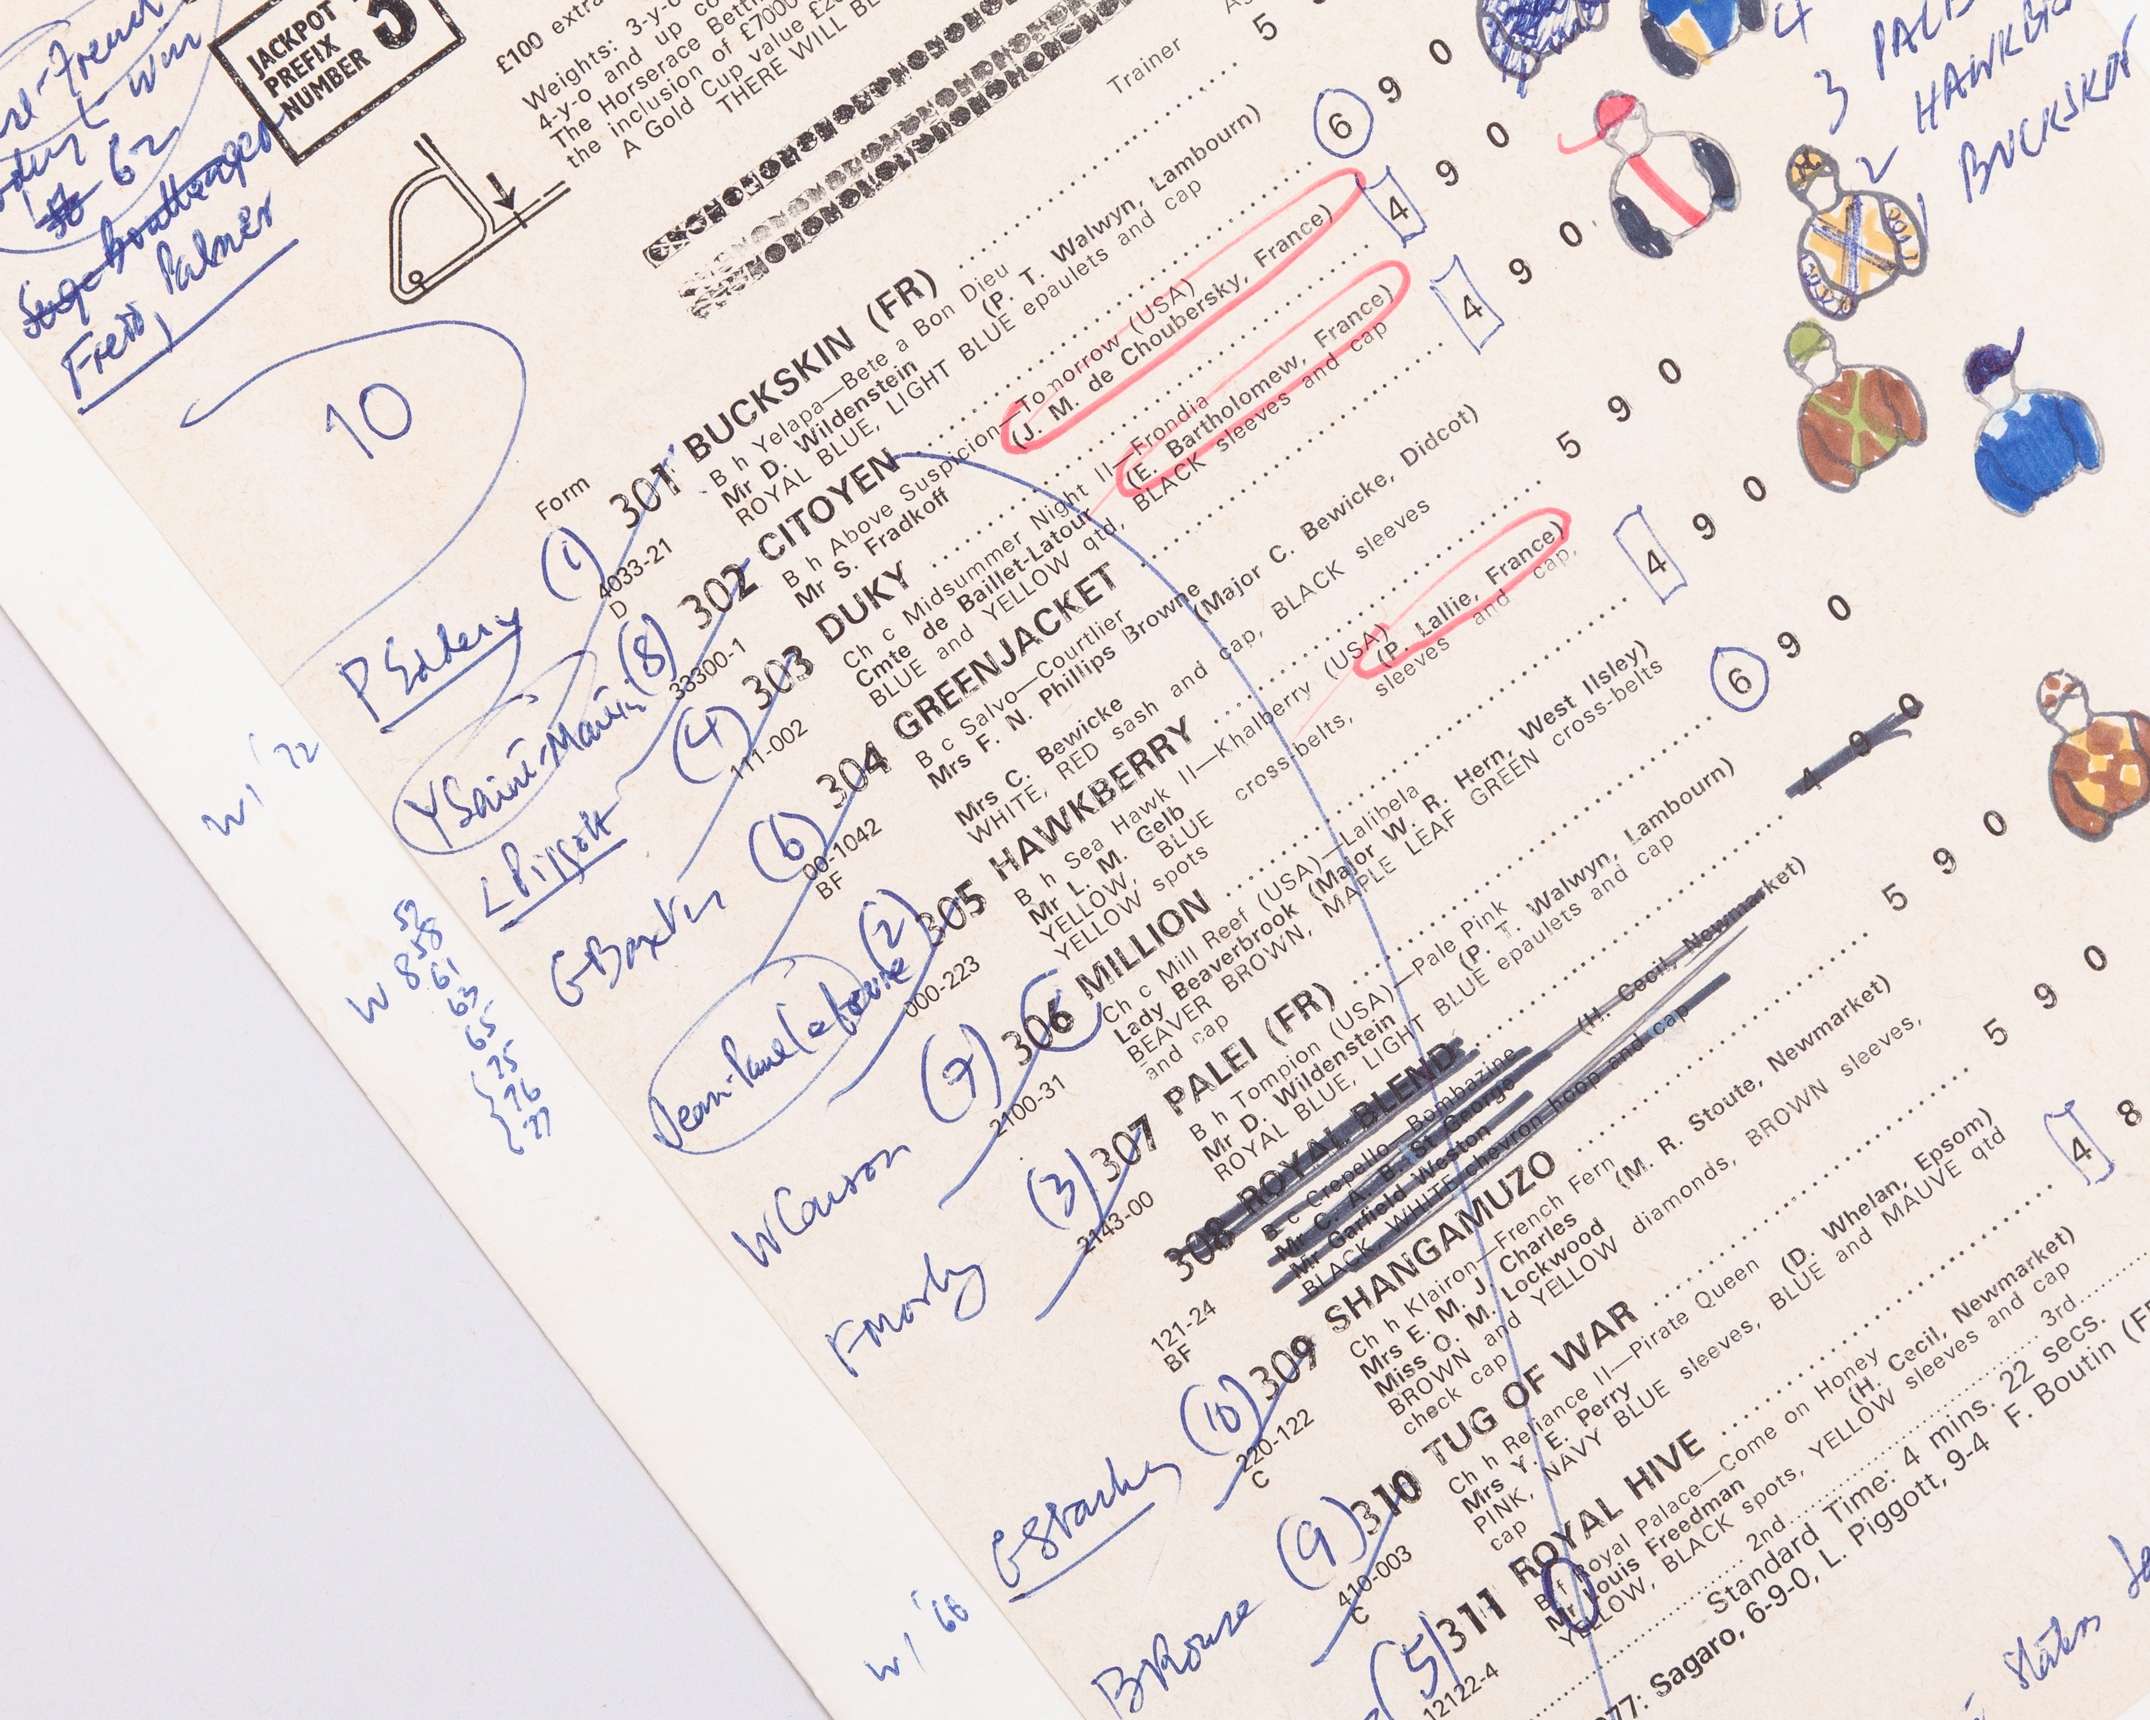 JACKPOT
PREFIX
NUMBER 3
£100 extra
Weights: 3-y-o
4-y-o and up
The Horserace Betti
the inclusion of £7000
A Gold Cup value
THERE WILL BE
62
Palmer
10
Form
Trainer
P Eddery (1)
301 BUCKSKIN (FR) 5 9 0
4033-21
D
B h Yelapa—Bete a Bon Dieu
Mr D. Wildenstein (P. T. Walwyn, Lambourn)
ROYAL BLUE, LIGHT BLUE epaulets and cap
Y Saint-Martin (8)
302 CITOYEN 6 9 0
33300-1
B h Above Suspicion—Tomorrow (USA)
Mr S. Fradkoff (J. M. de Choubersky, France)
L Piggott (4)
303 DUKY 4 9 0
111-002
Ch c Midsummer Night II—Frondia
Cmte de Baillet-Latour (E. Bartholomew, France)
BLUE and YELLOW qtd, BLACK sleeves and cap
G Baxter (6)
304 GREENJACKET 4 9 0
00-1042
BF
B c Salvo—Courtlier
Mrs F. N. Phillips Browne
Mrs C. Bewicke (Major C. Bewicke, Didcot)
WHITE, RED sash and cap, BLACK sleeves
(2)
305 HAWKBERRY 5 9 0
000-223
B h Sea Hawk II—Khalberry (USA)
Mr L. M. Gelb (P. Lallie, France)
YELLOW, BLUE cross-belts, sleeves and cap,
YELLOW spots
W Carson (7)
306 MILLION 4 9 0
2100-31
Ch c Mill Reef (USA)—Lalibela
Lady Beaverbrook (Major W. R. Hern, West Ilsley)
BEAVER BROWN, MAPLE LEAF GREEN cross-belts
and cap
F Morby (3)
307 PALEI (FR) 6 9 0
2143-00
B h Tompion (USA)—Pale Pink
Mr D. Wildenstein (P. T. Walwyn, Lambourn)
ROYAL BLUE, LIGHT BLUE epaulets and cap
308 ROYAL BLEND 4 9 0
121-24
BF
B c Crepello—Bombazine
Mr C. A. B. St George
Mr Garfield Weston (H. Cecil, Newmarket)
BLACK, WHITE chevron hoop and cap
G Starkey (10)
309 SHANGAMUZO 5 9 0
220-122
C
Ch h Klairon—French Fern
Mrs E. M. J. Charles
Miss O. M. Lockwood (M. R. Stoute, Newmarket)
BROWN and YELLOW diamonds, BROWN sleeves,
check cap
B Rouse (9)
310 TUG OF WAR 5 9 0
410-003
C
Ch h Reliance II—Pirate Queen
Mrs Y. E. Perry (D. Whelan, Epsom)
PINK, NAVY BLUE sleeves, BLUE and MAUVE qtd
cap
(5)
311 ROYAL HIVE 4 8
12122-4
B f Royal Palace—Come on Honey
Mr Louis Freedman (H. Cecil, Newmarket)
YELLOW, BLACK spots, YELLOW sleeves and cap
2nd 3rd
Standard Time: 4 mins. 22 secs.
77: Sagaro, 6-9-0, L. Piggott, 9-4 F. Boutin
4
3
2 HAWKBE
1 BUCKSKIN
W1 '72
W 8
52
58
61
63
65
75
76
77
W1 '66